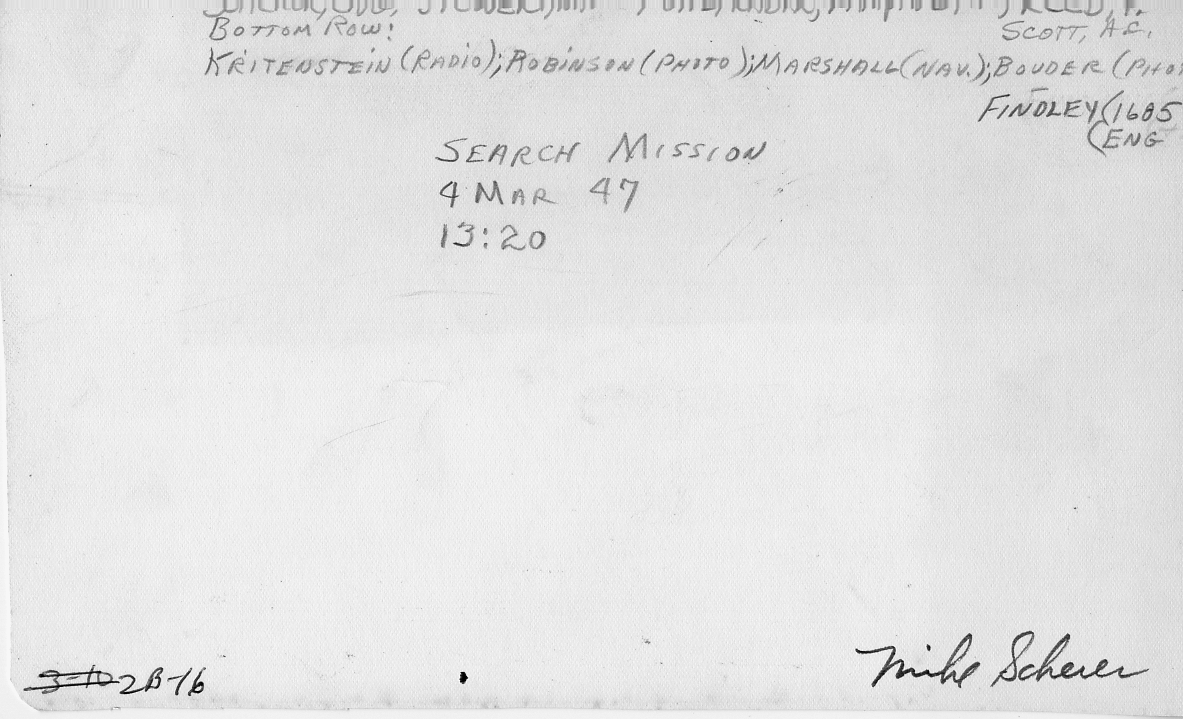 Scott, A.C.
Bottom Row:
Kritenstein (Radio); Robinson (Photo); Marshall (Nav.); Bouder (Pho
Findley (1685
(Eng
Search Mission
4 Mar 47
13:20
2B-16
Mike Scherer